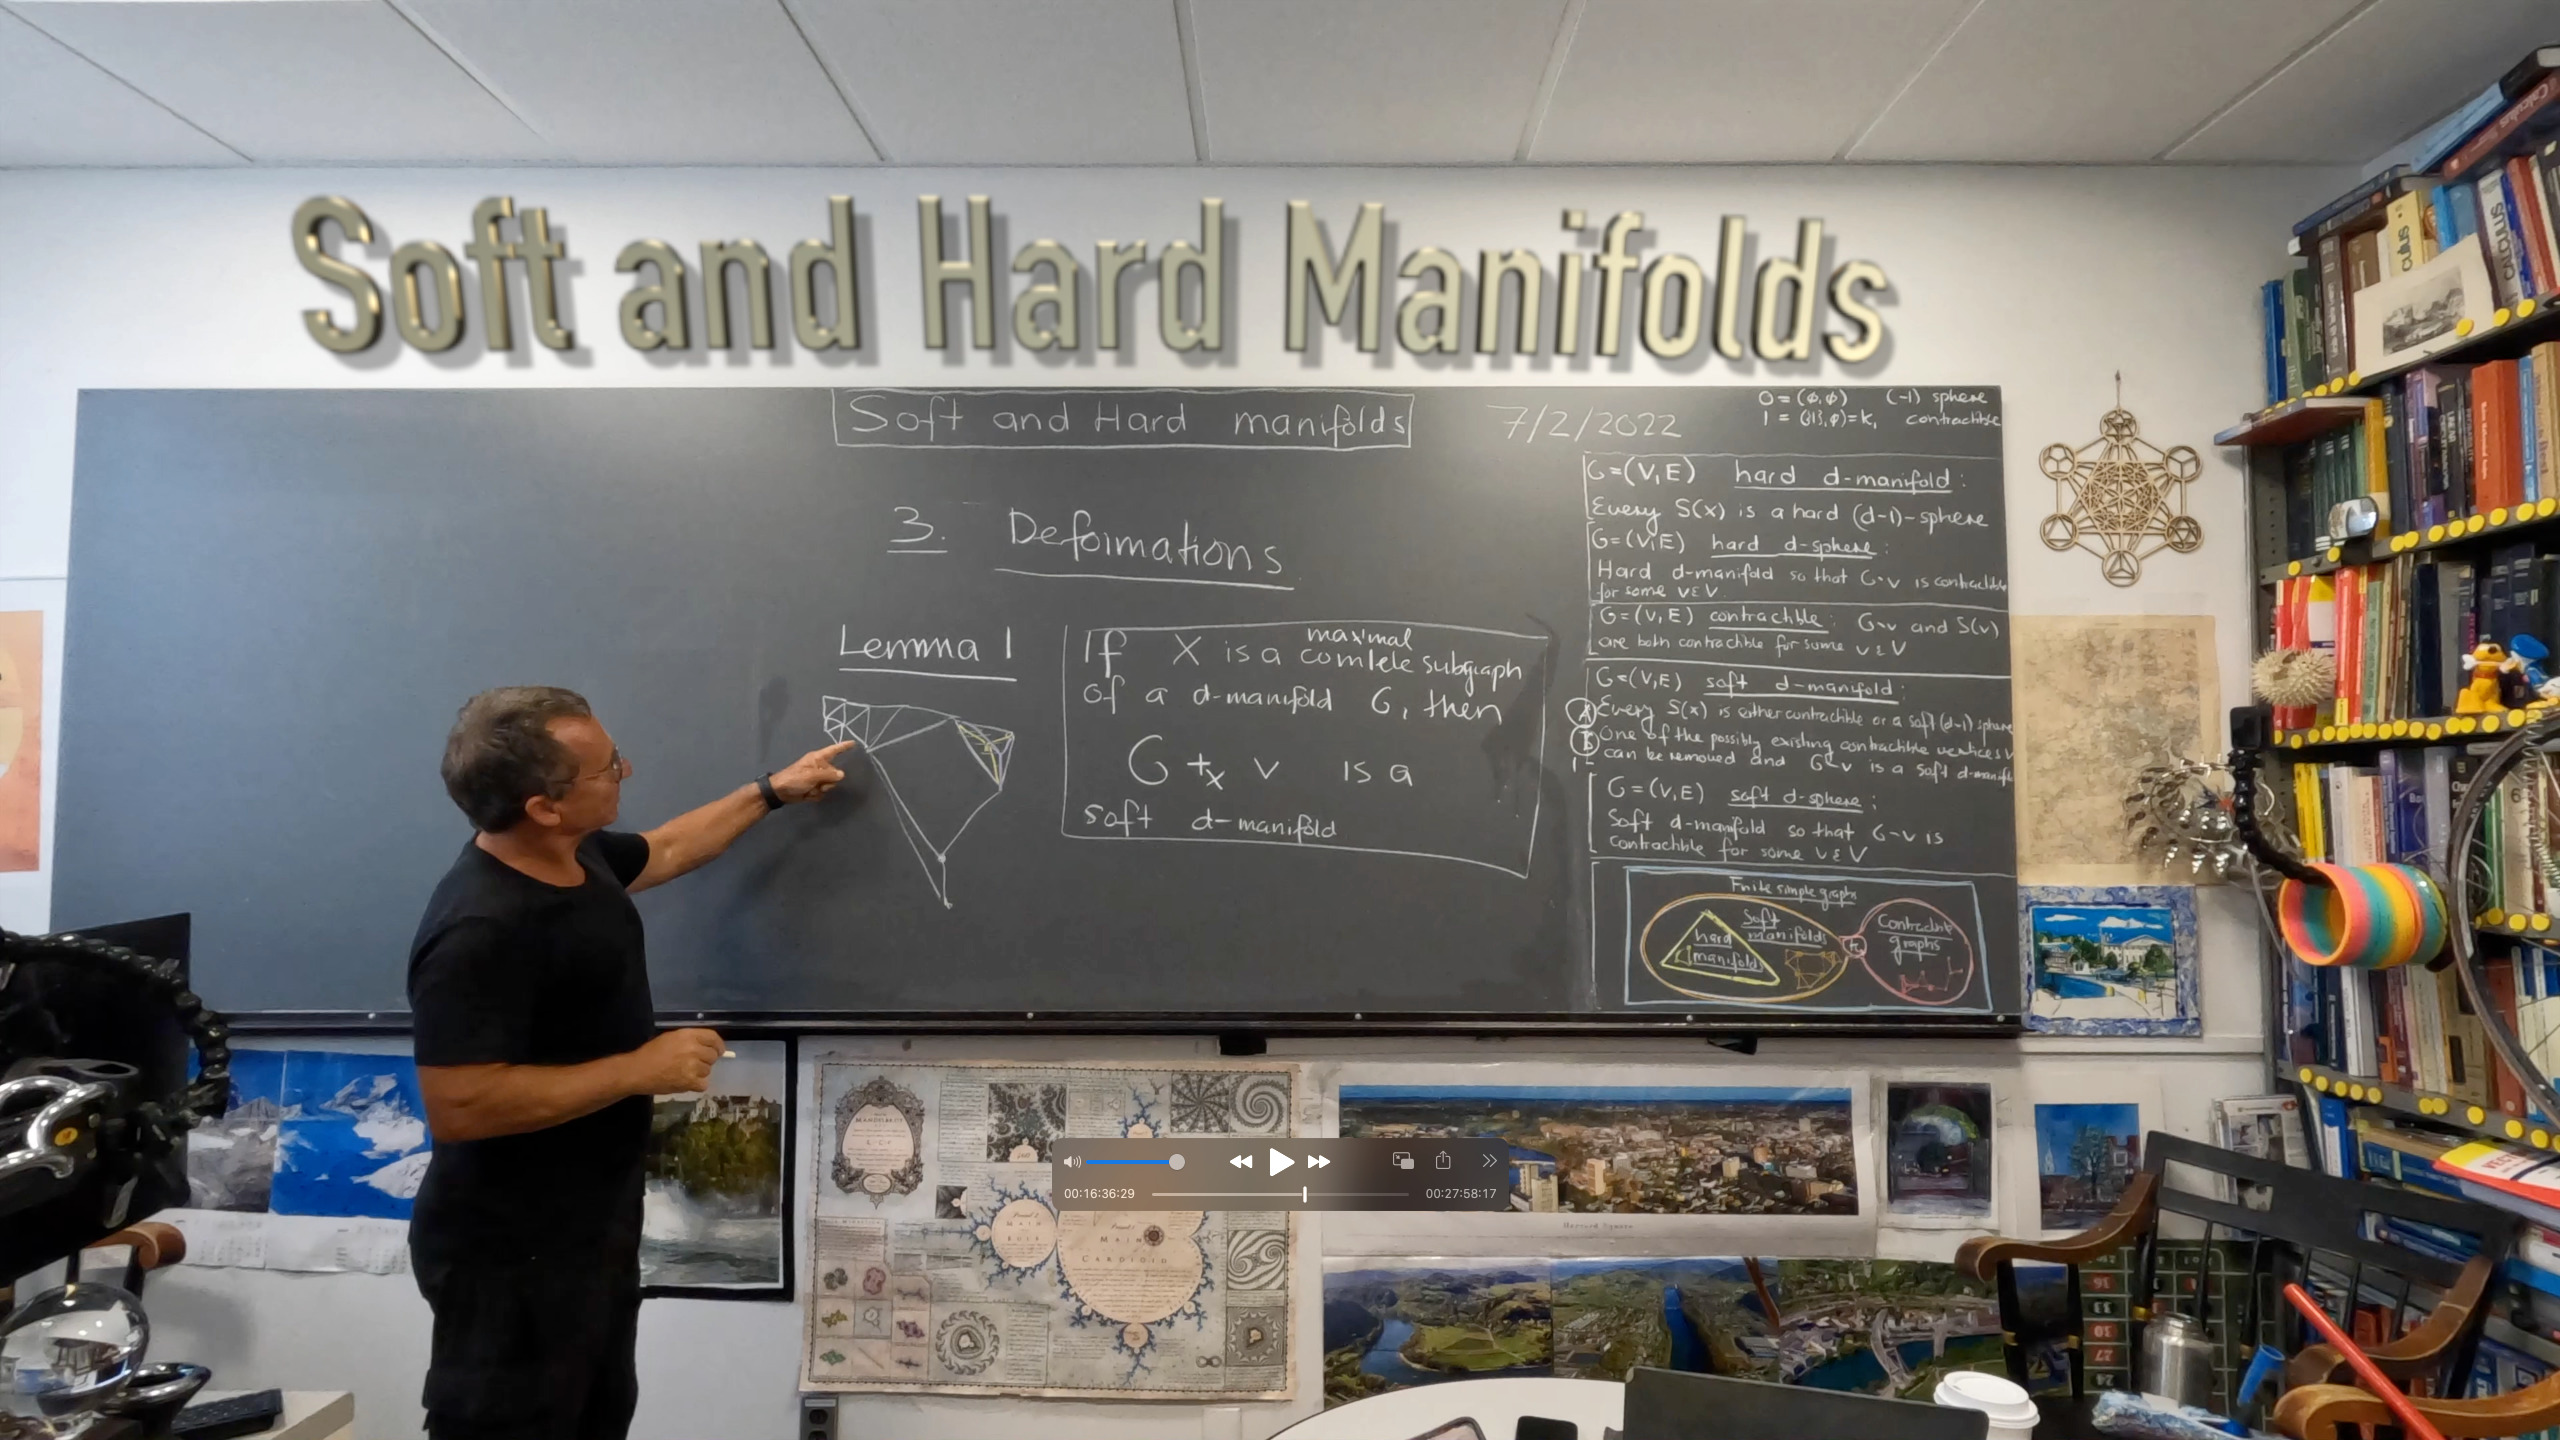 Soft and Hard Manifolds
Soft and Hard manifolds
7/2/2022
0 = (φ,φ) (-1) sphere
1 = ({1},φ)=K, contractible
3. Deformations
Lemma 1
If X is a maximal comlete subgraph
of a d-manifold G, then
G +x v is a
soft d-manifold
G=(V,E) hard d-manifold:
Every S(x) is a hard (d-1)-sphere
G=(V,E) hard d-sphere:
Hard d-manifold so that G-v is contractible
for some v ε V.
G=(V,E) contractible: G-v and S(v)
are both contractible for some v ε V
G=(V,E) soft d-manifold:
A Every S(x) is either contractible or a soft (d-1) sphere
B One of the possibly existing contractible vertices v
can be removed and G-v is a soft d-manifold
G=(V,E) soft d-sphere:
Soft d-manifold so that G-v is
contractible for some v ε V
Finite simple graphs
Soft
manifolds
hard
manifolds
K1
Contractible
graphs
MANDELBROT
MAIN
CARDIOID
00:16:36:29
00:27:58:17